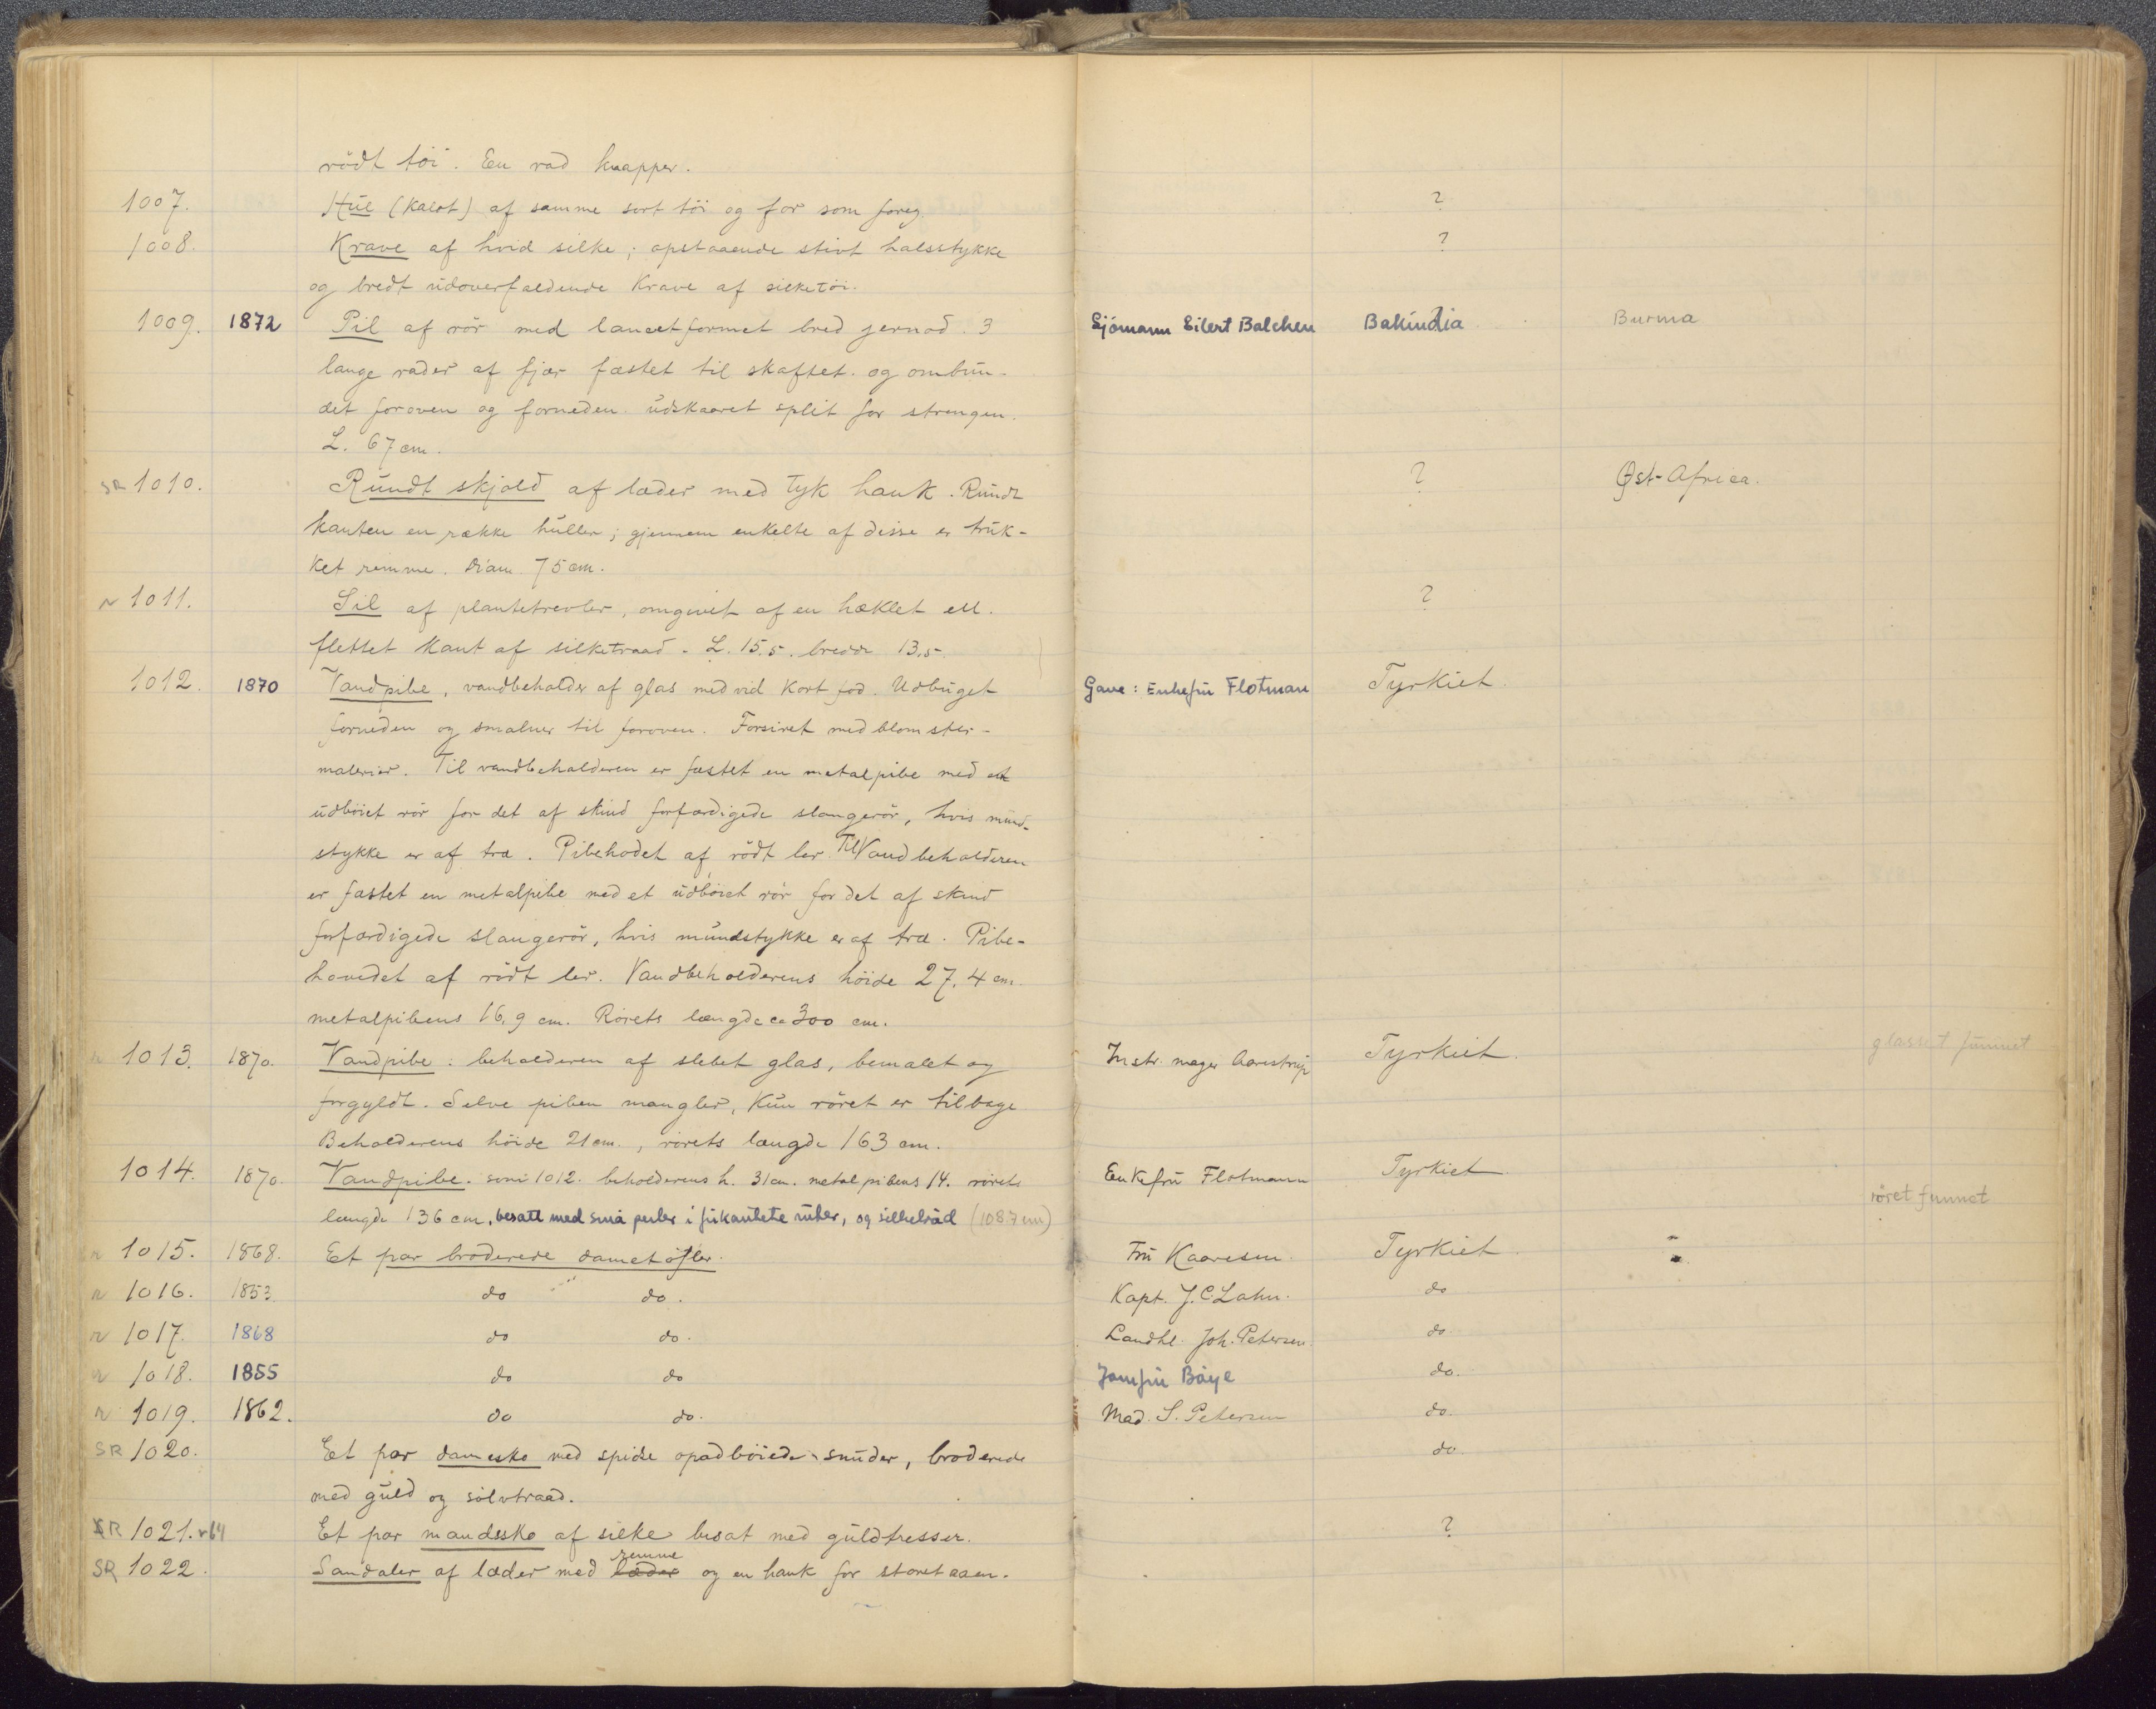 rödt töi. En rad knapper.
1007. Hue (Kalot) af samme sort töi og for som foreg. ?
1008. Krave af hvid silke; opstaaende stivt halsstykke ?
og bredt udoverfaldende Krave af silketöi.
1009. 1872 Pil af rör med lancetformet bred jernod. 3 Sjömann Eilert Balchen Bakindia Burma
lange rader af fjær fæstet til skaftet. og ombun-
det foroven og forneden. udskaaret split for strengen.
L. 67 cm.
SR 1010. Rundt skjold af læder med tyk hank. Rundt ? Øst-Africa.
Kanten en række huller; gjennem enkelte af disse er truk-
ket remme. Diam 75 cm.
r 1011. Sil af plantetrevler, omgivet af en hæklet ell. ?
flettet Kant af silketraad. L. 15.5. bredde 13.5.
1012. 1870 Vandpibe, vandbeholder af glas med vid Kort fod. Udbuget Gave: Enkefru Flotman Tyrkiet
forneden og smalner til foroven. Forsiret med blomster-
malerier. Til vandbeholderen er fæstet en metalpibe med et
udböiet rör for det af skind forfærdigede slangerör, hvis mund-
stykke er af træ. Pibehodet af rödt ler. Til Vandbeholderen
er fæstet en metalpibe med et udböiet rör for det af skind
forfærdigede slangerör, hvis mundstykke er af træ. Pibe-
hovedet af rödt ler. Vandbeholderens höide 27,4 cm.
metalpibens 16,9 cm. Rörets længde ca 300 cm.
r 1013. 1870. Vandpibe: beholderen af slebet glas, bemalet og Instr. mager Aarestrup Tyrkiet. glasset funnet
forgyldt. Selve piben mangler, Kun röret er tilbage
Beholderens höide 21 cm., rörets længde 163 cm.
1014. 1870. Vandpibe. som 1012. beholderens h. 31 cm. metalpibens 14. rörets Enkefru Flotmann Tyrkiet
længde 136 cm, besatt med små perler i firkantete ruter, og silketråd (108.7 cm) röret funnet
r 1015. 1868. Et par broderede dametöfler. Fru Kaaresen. Tyrkiet "
r 1016. 1853. do " do. Kapt. J.C. Lahn. do
r 1017. 1868 do do. Landhl. Joh. Petersen. do
r 1018. 1855 do do Jomfru Böye do.
r 1019. 1862. do do. Mad. S. Petersen do.
SR 1020. Et par damesko med spidse opadböiede snuder, broderede do.
med guld og sölvtraad.
SR 1021. Et par mandssko af silke besat med guldtresser. ?
SR 1022. Sandaler af læder med læder remme og en hank for storetaaen.